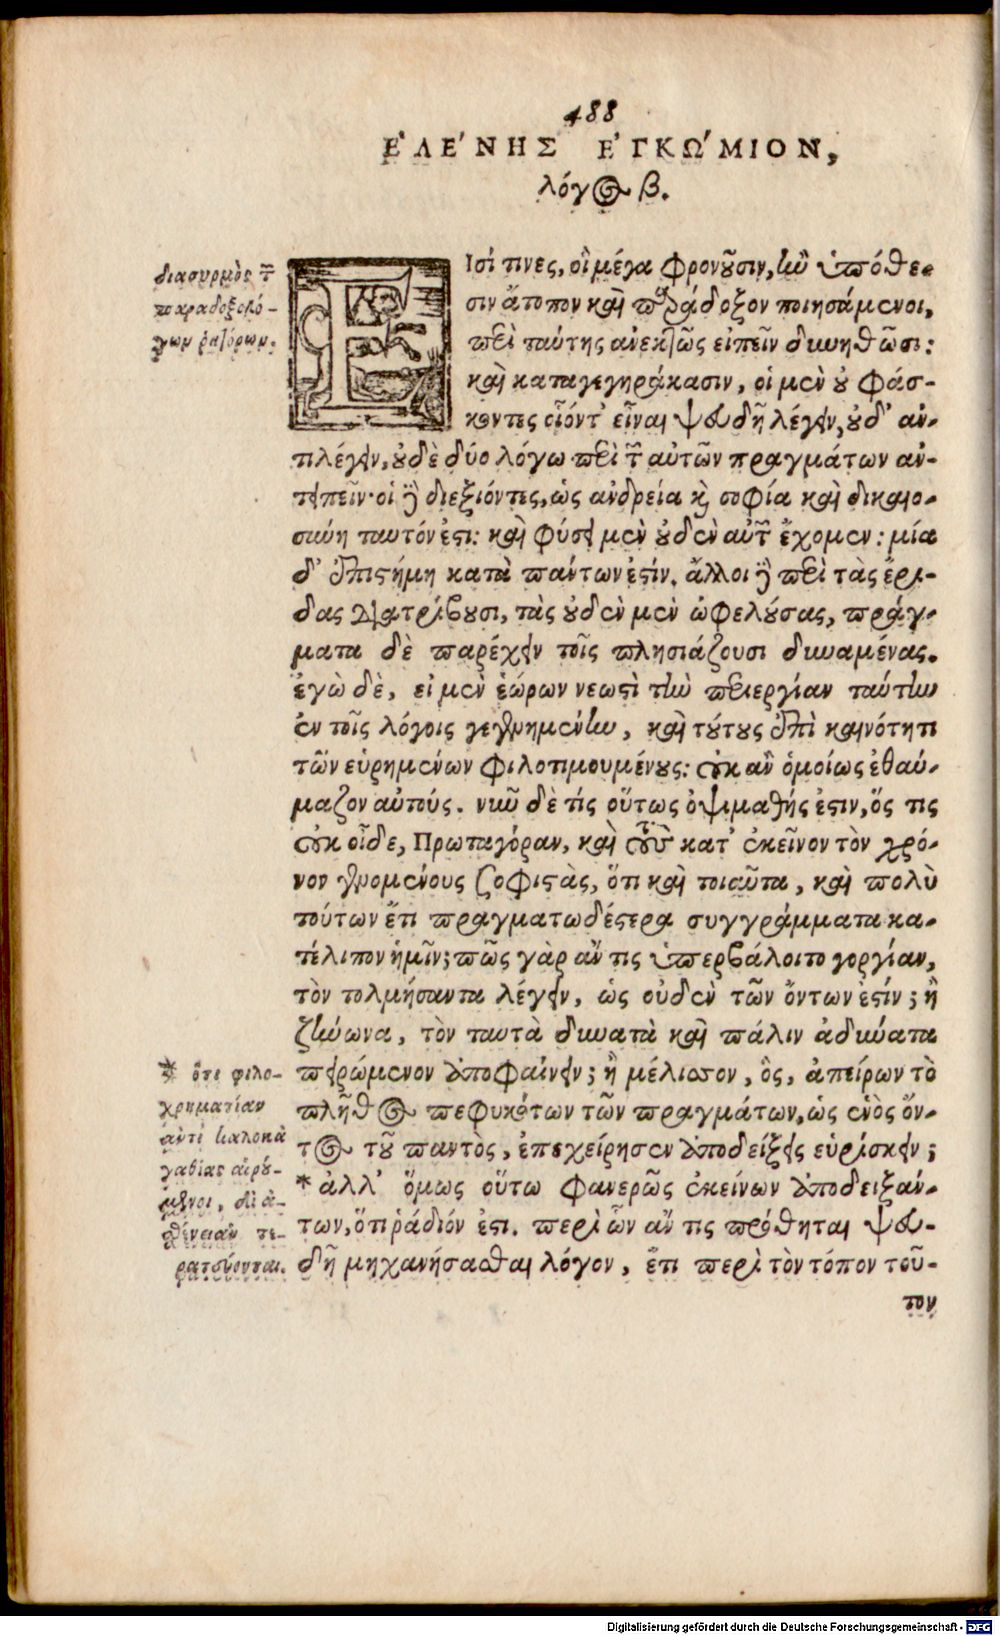 488
ΕʹΛΕʹΝΗΣ ΕʹΓΚΩʹΜΙΟΝ,
λόγος β.
διασυρμὸς τῶν
παραδοξολό-
γων ῥητόρων.
Εἰσί τινες, οἳ μέγα φρονοῦσιν, ἢν ὑπόθε-
σιν ἄτοπον καὶ παράδοξον ποιησάμενοι,
περὶ ταύτης ἀνεκτῶς εἰπεῖν δυνηθῶσι:
καὶ καταγεγηράκασιν, οἱ μὲν οὐ φάσ-
κοντες οἷόντ' εἶναι ψευδῆ λέγειν, οὐδ' ἀν-
τιλέγειν, οὐδὲ δύο λόγω περὶ τῶν αὐτῶν πραγμάτων ἀν-
τειπεῖν· οἱ δὲ διεξιόντες, ὡς ἀνδρεία καὶ σοφία καὶ δικαιο-
σύνη ταυτόν ἐστι: καὶ φύσει μὲν οὐδὲν αὐτῶν ἔχομεν: μία
δ' ἐπιστήμη κατὰ πάντων ἐστίν. ἄλλοι δὲ περὶ τὰς ἔρι-
δας διατρίβουσι, τὰς οὐδὲν μὲν ὠφελούσας, πράγ-
ματα δὲ παρέχειν τοῖς πλησιάζουσι δυναμένας.
ἐγὼ δὲ, εἰ μὲν ἑώρων νεωστὶ τὴν περιεργίαν ταύτην
ἐν τοῖς λόγοις γεγενημένην, καὶ τούτους ἐπὶ καινότητι
τῶν εὑρημένων φιλοτιμουμένους: οὐκ ἂν ὁμοίως ἐθαύ-
μαζον αὐτούς. νῦν δὲ τίς οὕτως ὀψιμαθής ἐστιν, ὅς τις
οὐκ οἶδε, Πρωταγόραν, καὶ τοὺς κατ' ἐκεῖνον τὸν χρό-
νον γενομένους σοφιστὰς, ὅτι καὶ τοιαῦτα, καὶ πολὺ
τούτων ἔτι πραγματωδέστερα συγγράμματα κα-
τέλιπον ἡμῖν; πῶς γὰρ ἄν τις ὑπερβάλοιτο γοργίαν,
τὸν τολμήσαντα λέγειν, ὡς οὐδὲν τῶν ὄντων ἐστίν; ἢ
ζήνωνα, τὸν ταυτὰ δυνατὰ καὶ πάλιν ἀδύνατα
πειρώμενον ἀποφαίνειν; ἢ μέλισσον, ὃς, ἀπείρων τὸ
πλῆθος πεφυκότων τῶν πραγμάτων, ὡς ἑνὸς ὄν-
τος τοῦ παντὸς, ἐπεχείρησεν ἀποδείξεις εὑρίσκειν;
* ἀλλ' ὅμως οὕτω φανερῶς ἐκείνων ἀποδειξάν-
των, ὅτι ῥάδιόν ἐστι. περὶ ὧν ἄν τις πρόθηται ψευ-
δῆ μηχανήσασθαι λόγον, ἔτι περὶ τὸν τόπον τοῦ-
τον
* ὅτι φιλο-
χρηματίαν
ἀντὶ καλοκἀ
γαθίας αἱρού-
μενοι,
τε-
ρατεύονται.
Digitalisierung gefördert durch die Deutsche Forschungsgemeinschaft - DFG